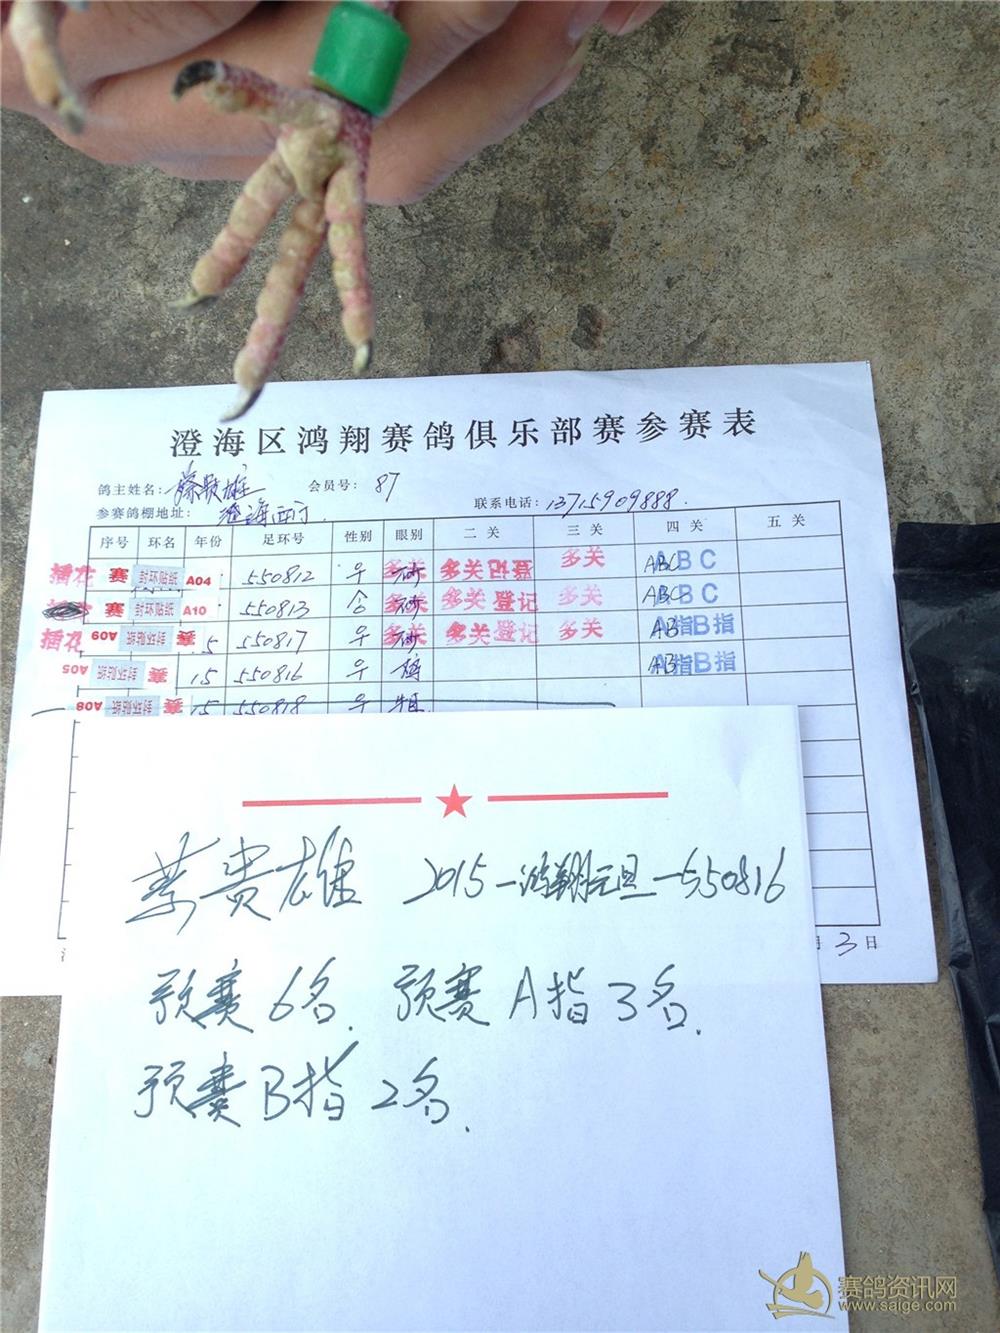 澄海区鸿翔赛鸽俱乐部赛参赛表
鸽主姓名： 会员号：87
参赛鸽棚地址：澄海 联系电话：13715909888.
序号 环名 年份 足环号 性别 眼别 二关 三关 四关 五关
插花 赛 封环贴纸 A04 550812 多关 多关登记 多关 ABC ABC
赛 封环贴纸 A10 550813 多关 多关登记 多关 ABC ABC
插花 A09 封环贴纸 赛 15 550817 多关 多关登记 多关 AB A指B指
A05 封环贴纸 赛 15 550816 AB A指B指
A08 封环贴纸 赛 15 550818
3日
蔡贵雄 2015-鸿翔元旦-550816
预赛6名. 预赛A指3名.
预赛B指2名.
赛鸽资讯网
www.saige.com